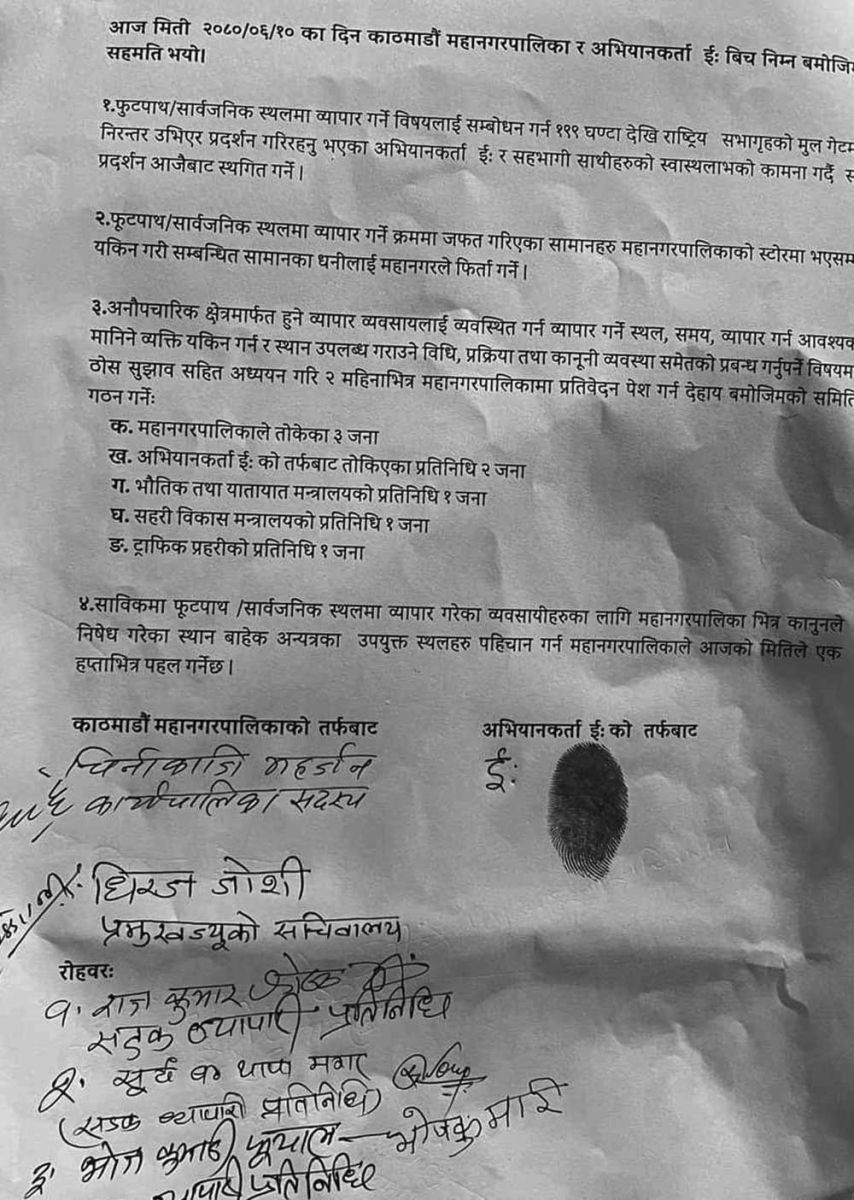 आज मिती २०८०/०६/१० का दिन काठमाडौं महानगरपालिका र अभियानकर्ता ईः बिच निम्न बमोजिम
सहमति भयो।
१.फुटपाथ/सार्वजनिक स्थलमा व्यापार गर्ने विषयलाई सम्बोधन गर्न १९९ घण्टा देखि राष्ट्रिय सभागृहको मुल गेटम
निरन्तर उभिएर प्रदर्शन गरिरहनु भएका अभियानकर्ता ईः र सहभागी साथीहरुको स्वास्थलाभको कामना गर्दै
प्रदर्शन आजैबाट स्थगित गर्ने।
२.फूटपाथ/सार्वजनिक स्थलमा व्यापार गर्ने क्रममा जफत गरिएका सामानहरु महानगरपालिकाको स्टोरमा भएसम्म
यकिन गरी सम्बन्धित सामानका धनीलाई महानगरले फिर्ता गर्ने।
३.अनौपचारिक क्षेत्रमार्फत हुने व्यापार व्यवसायलाई व्यवस्थित गर्न व्यापार गर्ने स्थल, समय, व्यापार गर्न आवश्यक
मानिने व्यक्ति यकिन गर्न र स्थान उपलब्ध गराउने विधि, प्रक्रिया तथा कानूनी व्यवस्था समेतको प्रबन्ध गर्नुपर्ने विषयम
ठोस सुझाव सहित अध्ययन गरि २ महिनाभित्र महानगरपालिकामा प्रतिवेदन पेश गर्न देहाय बमोजिमको समिति
गठन गर्नेः
क. महानगरपालिकाले तोकेका ३ जना
ख. अभियानकर्ता ईः को तर्फबाट तोकिएका प्रतिनिधि २ जना
ग. भौतिक तथा यातायात मन्त्रालयको प्रतिनिधि १ जना
घ. सहरी विकास मन्त्रालयको प्रतिनिधि १ जना
ङ. ट्राफिक प्रहरीको प्रतिनिधि १ जना
४.साविकमा फूटपाथ /सार्वजनिक स्थलमा व्यापार गरेका व्यवसायीहरुका लागि महानगरपालिका भित्र कानुनले
निषेध गरेका स्थान बाहेक अन्यत्रका उपयुक्त स्थलहरु पहिचान गर्न महानगरपालिकाले आजको मितिले एक
हप्ताभित्र पहल गर्नेछ।
काठमाडौं महानगरपालिकाको तर्फबाट
अभियानकर्ता ईः को तर्फबाट
चिनीकाजि महर्जन
ईः
कार्यपालिका सदस्य
धिरज जोशी
प्रमुखज्यूको सचिवालय
रोहवरः
१. राज कुमार
सडक व्यापारी प्रतिनिधि
२. सूर्य ब० थापा मगर
(सडक व्यापारी प्रतिनिधि)
३. भोज कुमारी फूयाल भोजकुमारी
व्यापारी प्रतिनिधि